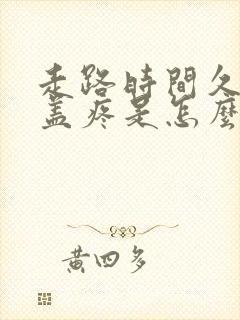 走路時間久
蓋疼是怎麼
黄四多